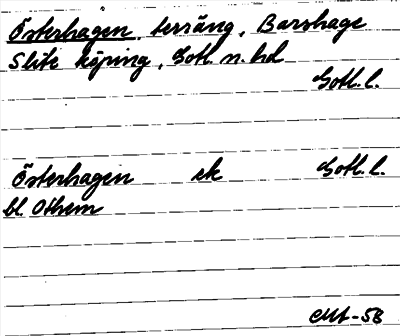 Österhagen, terräng, Barshage
Slite köping, Gotl. n. hd
Gotl. l.
Österhagen ek Gotl. l.
bl. Othem
-53